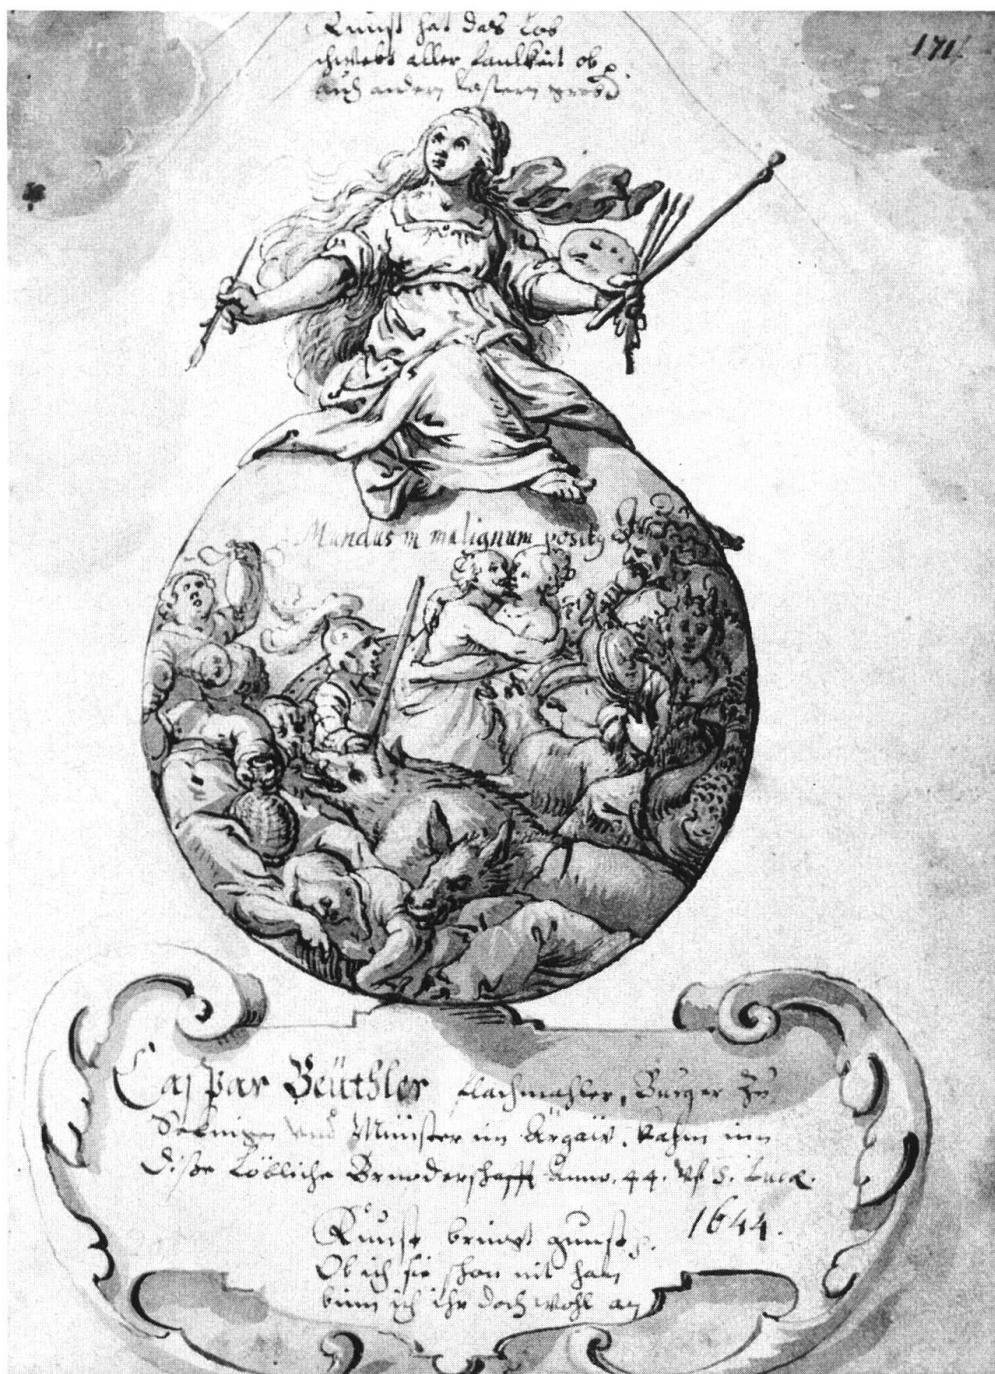 Kunst hat das Lob
schwebt aller faulkeit ob
auch andern lastern gross
171
Mundus in malignum positus
Caspar Beüthler flachmahler, Burger zu
und Münster im Ärgäiv, kahm inn
diße Lobliche Bruoderschafft Anno. 44. Vf S. Luca.
1644.
Kunst bringt gunst.
Ob ich sie schon nit han
binn ich ihr doch wohl an